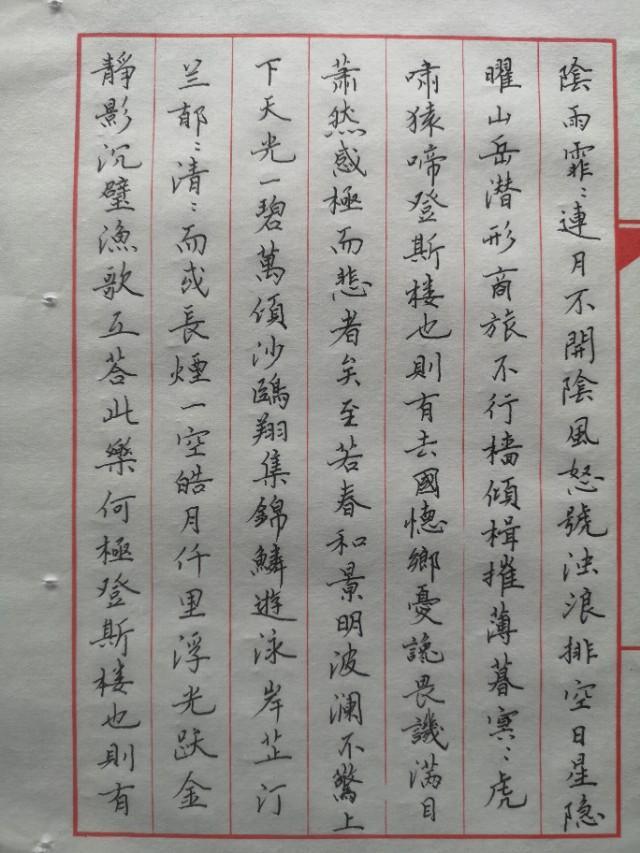 陰雨霏：連月不開陰風怒號浊浪排空日星隐
曜山岳潜形商旅不行檣傾楫摧薄暮冥：虎
啸猿啼登斯楼也則有去國懷鄉憂讒畏譏满目
萧然感極而悲者矣至若春和景明波澜不驚上
下天光一碧萬傾沙鷗翔集錦鱗遊泳岸芷汀
兰郁：清：而或長煙一空皓月仟里浮光跃金
靜影沉璧漁歌互荅此樂何極登斯楼也則有